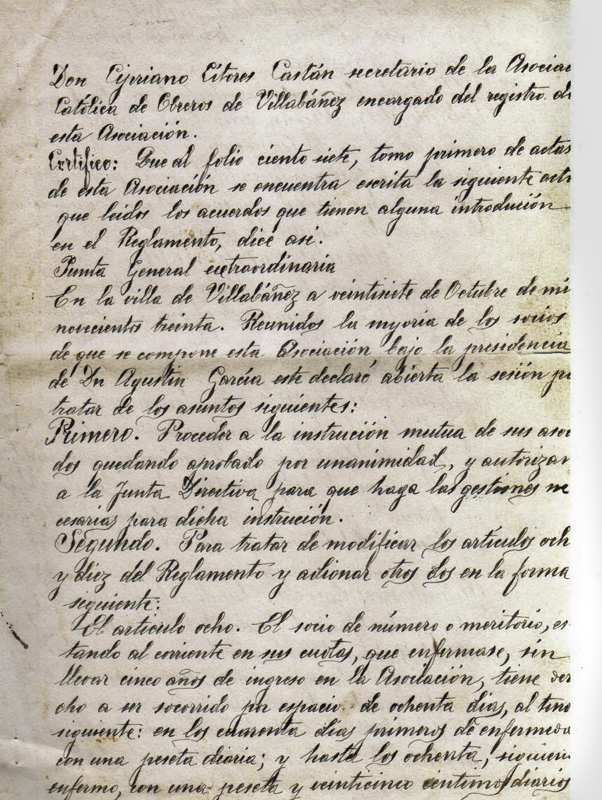 Don Cipriano Litores Castán secretario de la Asociac
Católica de Obreros de Villabáñez encargado del registro de
esta Asociación.
Certifico: Que al folio ciento siete, tomo primero de actas
de esta Asociación se encuentra escrita la siguiente acta
que leidos los acuerdos que tienen alguna introdución
en el Reglamento, dice asi.
Junta General extraordinaria
En la villa de Villabáñez a veintisiete de Octubre de mi
novecientos treinta. Reunidos la myoria de los socios
de que se compone esta Asociación bajo la presidencia
de Dn Agustin García este declaró abierta la sesión pa
tratar de los asuntos siguientes:
Primero. Proceder a la instrución mutua de sus asoc
dos quedando aprobado por unanimidad, y autorizar
a la Junta Directiva para que haga las gestiones ne
cesarias para dicha instrución.
Segundo. Para tratar de modificar los artículos och
y diez del Reglamento y adionar otros dos en la forma
siguiente:
El articulo ocho. El socio de número o meritorio, es-
tando al corriente en sus cuotas, que enfermase, sin
llevar cinco años de ingreso en la Asociación, tiene der
cho a ser socorrido por espacio de ochenta dias, al teno
siguiente: en los cuarenta dias primeros de enfermeda
con una peseta diaria; y hasta los ochenta, siguien
enfermo, con una peseta y veinticinco centimos diarios